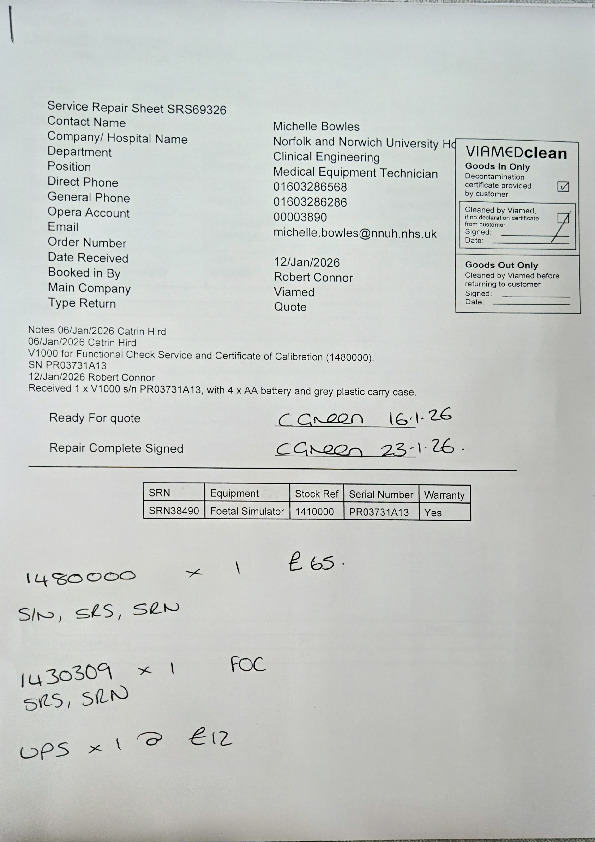 Service Repair Sheet SRS69326
Contact Name Michelle Bowles
Company/ Hospital Name Norfolk and Norwich University Ho
Department Clinical Engineering
Position Medical Equipment Technician
Direct Phone 01603286568
General Phone 01603286286
Opera Account 00003890
Email michelle.bowles@nnuh.nhs.uk
Order Number
Date Received 12/Jan/2026
Booked in By Robert Connor
Main Company Viamed
Type Return Quote
VIAMEDclean
Goods In Only
Decontamination
certificate provided
by customer
Cleaned by Viamed,
if no declaration certificate
from customer
Signed:
Date:
Goods Out Only
Cleaned by Viamed before
returning to customer
Signed:
Date:
Notes 06/Jan/2026 Catrin Hird
06/Jan/2026 Catrin Hird
V1000 for Functional Check Service and Certificate of Calibration (1480000).
SN PR03731A13
12/Jan/2026 Robert Connor
Received 1 x V1000 s/n PR03731A13, with 4 x AA battery and grey plastic carry case.
Ready For quote C Green 16.1.26
Repair Complete Signed C Green 23-1.26.
SRN Equipment Stock Ref Serial Number Warranty
SRN38490 Foetal Simulator 1410000 PR03731A13 Yes
1480000 x 1 £65.
S/N, SRS, SRN
1430309 x 1 FOC
SRS, SRN
UPS x 1 @ £12